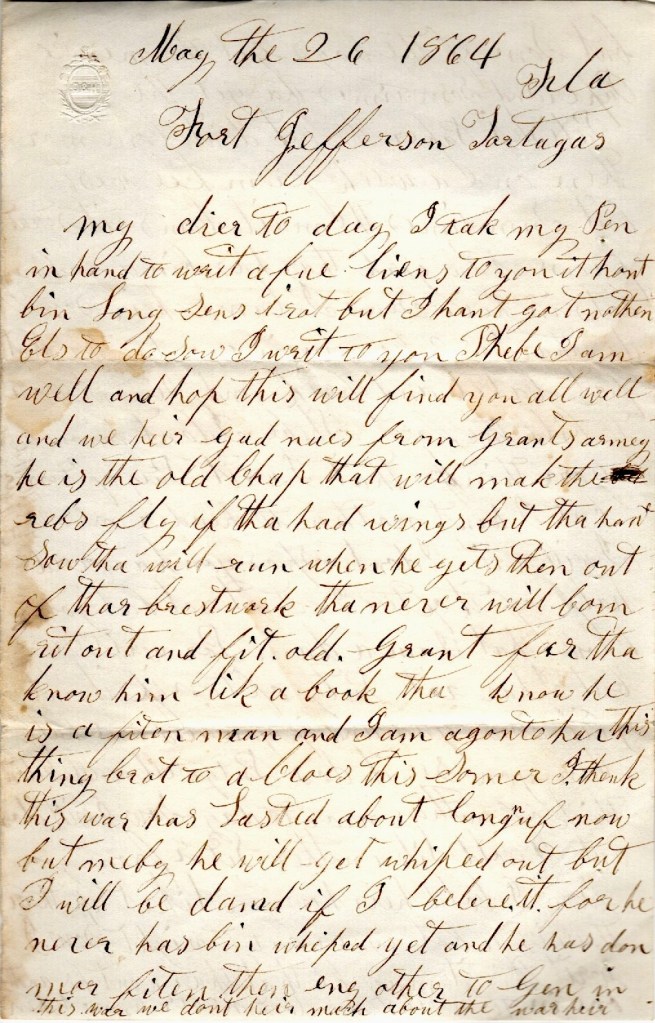 May the 26 1864
Fla
Fort Jefferson Tortugas
my dier to day I tak my Pen
in hand to writ a fue liens to you it hant
bin Long sens i rot but I hant got nothen
Els to do sow I writ to you Phebe I am
well and hop this will find you all well
and we heir gud nues from Grants armey
he is the old Chap that will mak the
rebs fly if tha had wings but tha hant
sow tha will run when he gets then out
of thar brestwork tha never will com
rit out and fit. old. Grant for tha
know him lik a book tha know he
is a fiten man and I am agonto hav this
thing brot to a cloes this Somer I. thenk
this war has Lasted about long nuf now
but meby he will get whiped out but
I will be damd if I beleve it. for he
never has bin whiped yet and he has don
mor fiten then eny other to Gen in
this war we dont heir much about the war heir